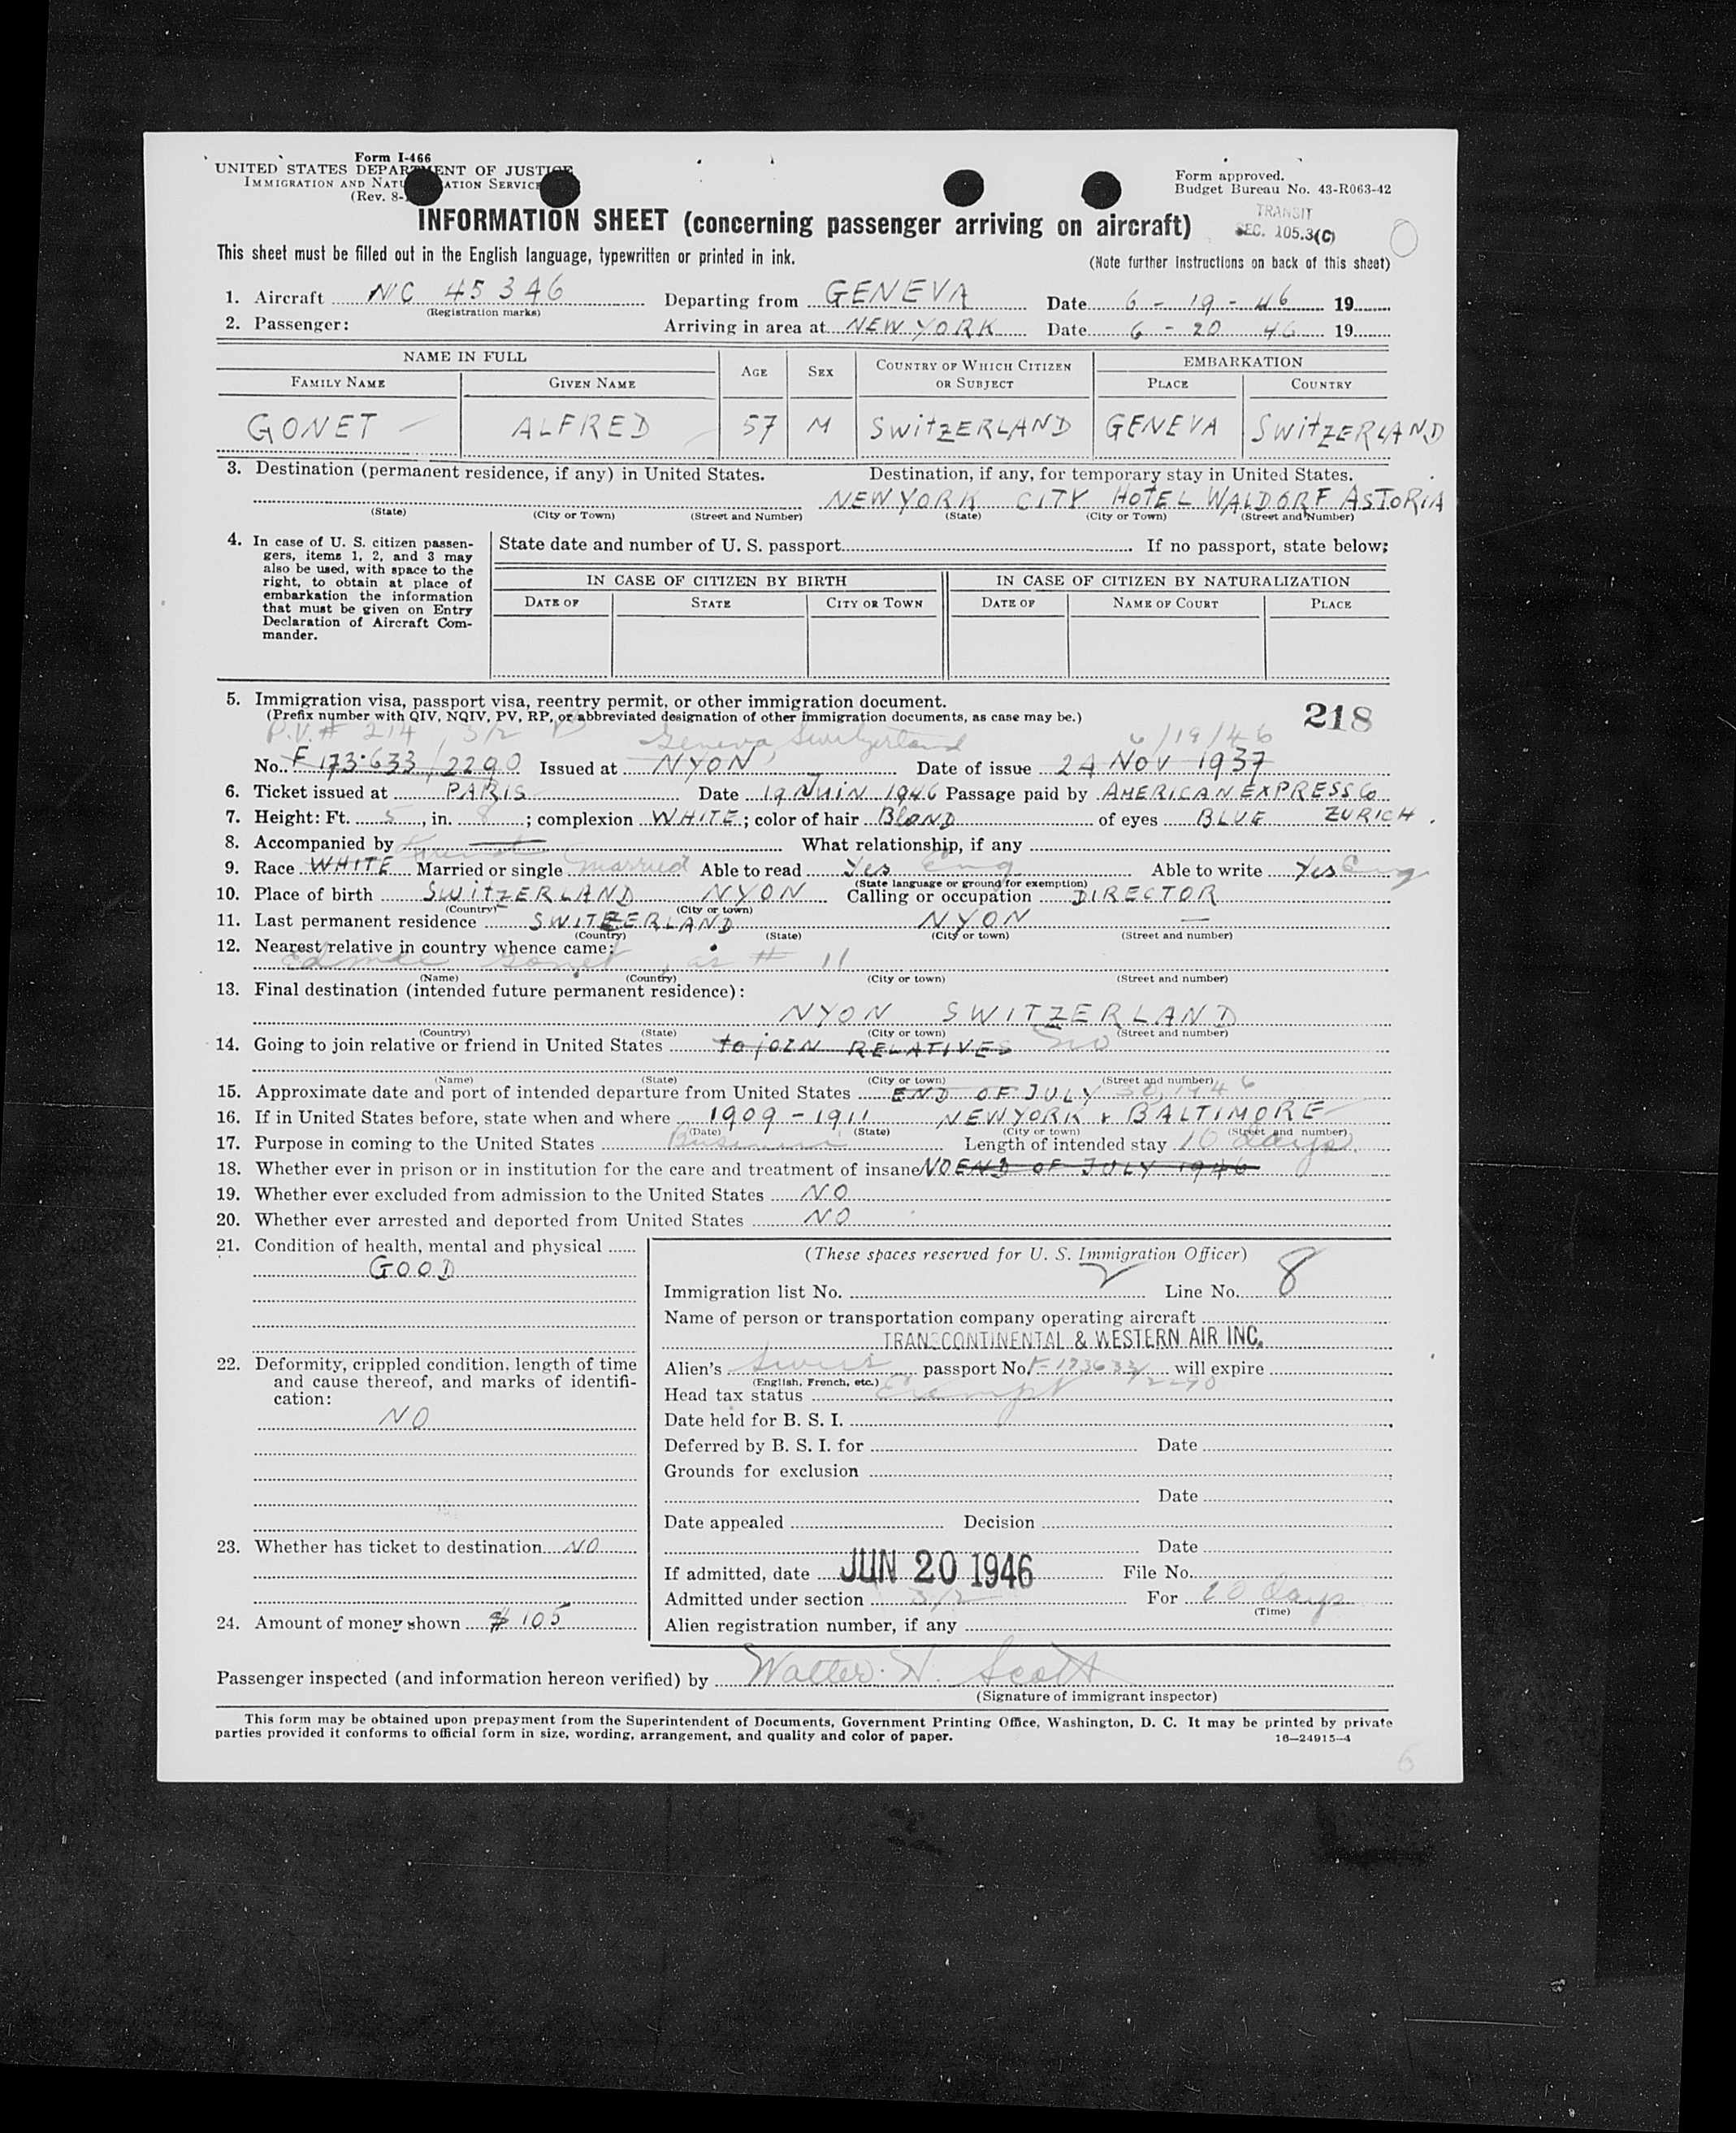 Form I-466
UNITED STATES DEPARTMENT OF JUSTICE
IMMIGRATION AND NATURALIZATION SERVICE
(Rev. 8-
Form approved.
Budget Bureau No. 43-R063-42
TRANSIT
SEC. 105.3(C)
INFORMATION SHEET (concerning passenger arriving on aircraft)
This sheet must be filled out in the English language, typewritten or printed in ink.
(Note further instructions on back of this sheet)
1. Aircraft NC 45346 Departing from GENEVA Date 6-19-46 19
(Registration marks)
2. Passenger: Arriving in area at NEW YORK Date 6-20 46 19
NAME IN FULL AGE SEX COUNTRY OF WHICH CITIZEN OR SUBJECT EMBARKATION
FAMILY NAME GIVEN NAME PLACE COUNTRY
GONET ALFRED 57 M SWITZERLAND GENEVA SWITZERLAND
3. Destination (permanent residence, if any) in United States. Destination, if any, for temporary stay in United States.
NEW YORK CITY HOTEL WALDORF ASTORIA
(State) (City or Town) (Street and Number) (State) (City or Town) (Street and Number)
4. In case of U. S. citizen passengers, items 1, 2, and 3 may also be used, with space to the right, to obtain at place of embarkation the information that must be given on Entry Declaration of Aircraft Commander.
State date and number of U. S. passport If no passport, state below:
IN CASE OF CITIZEN BY BIRTH IN CASE OF CITIZEN BY NATURALIZATION
DATE OF STATE CITY OR TOWN DATE OF NAME OF COURT PLACE
5. Immigration visa, passport visa, reentry permit, or other immigration document.
(Prefix number with QIV, NQIV, PV, RP, or abbreviated designation of other immigration documents, as case may be.)
218
P.V. # 214 3/2 Geneva, Switzerland 6/19/46
No. F 173.633/2290 Issued at NYON Date of issue 24 NOV 1937
6. Ticket issued at PARIS Date 19 JUIN 1946 Passage paid by AMERICAN EXPRESS Co
ZURICH
7. Height: Ft. 5, in. 8; complexion WHITE; color of hair BLOND of eyes BLUE
8. Accompanied by What relationship, if any
9. Race WHITE French Married or single married Able to read Yes Eng Able to write Yes Eng
(State language or ground for exemption)
10. Place of birth SWITZERLAND NYON Calling or occupation DIRECTOR
(Country) (City or town)
11. Last permanent residence SWITZERLAND NYON —
(Country) (State) (City or town) (Street and number)
12. Nearest relative in country whence came:
Gonet, as # 11
(Name) (Country) (City or town) (Street and number)
13. Final destination (intended future permanent residence):
NYON SWITZERLAND
(Country) (State) (City or town) (Street and number)
14. Going to join relative or friend in United States to join RELATIVES no
(Name) (State) (City or town) (Street and number)
15. Approximate date and port of intended departure from United States END OF JULY 30, 1946
16. If in United States before, state when and where 1909-1911 NEW YORK & BALTIMORE
(Date) (State) (City or town) (Street and number)
17. Purpose in coming to the United States Business Length of intended stay 10 days
18. Whether ever in prison or in institution for the care and treatment of insane NO END OF JULY 1946
19. Whether ever excluded from admission to the United States NO
20. Whether ever arrested and deported from United States NO
21. Condition of health, mental and physical
GOOD
22. Deformity, crippled condition, length of time and cause thereof, and marks of identification:
NO
23. Whether has ticket to destination NO
24. Amount of money shown $105
(These spaces reserved for U. S. Immigration Officer)
Immigration list No. 2 Line No. 8
Name of person or transportation company operating aircraft
TRANSCONTINENTAL & WESTERN AIR INC.
Alien's Swiss passport No. F-173633/2290 will expire
(English, French, etc.)
Head tax status Exempt
Date held for B. S. I.
Deferred by B. S. I. for Date
Grounds for exclusion
Date
Date appealed Decision
Date
If admitted, date JUN 20 1946 File No.
Admitted under section 3/2 For 20 days
(Time)
Alien registration number, if any
Passenger inspected (and information hereon verified) by Walter H. Scott
(Signature of immigrant inspector)
This form may be obtained upon prepayment from the Superintendent of Documents, Government Printing Office, Washington, D. C. It may be printed by private
parties provided it conforms to official form in size, wording, arrangement, and quality and color of paper.
16—24915-4
6